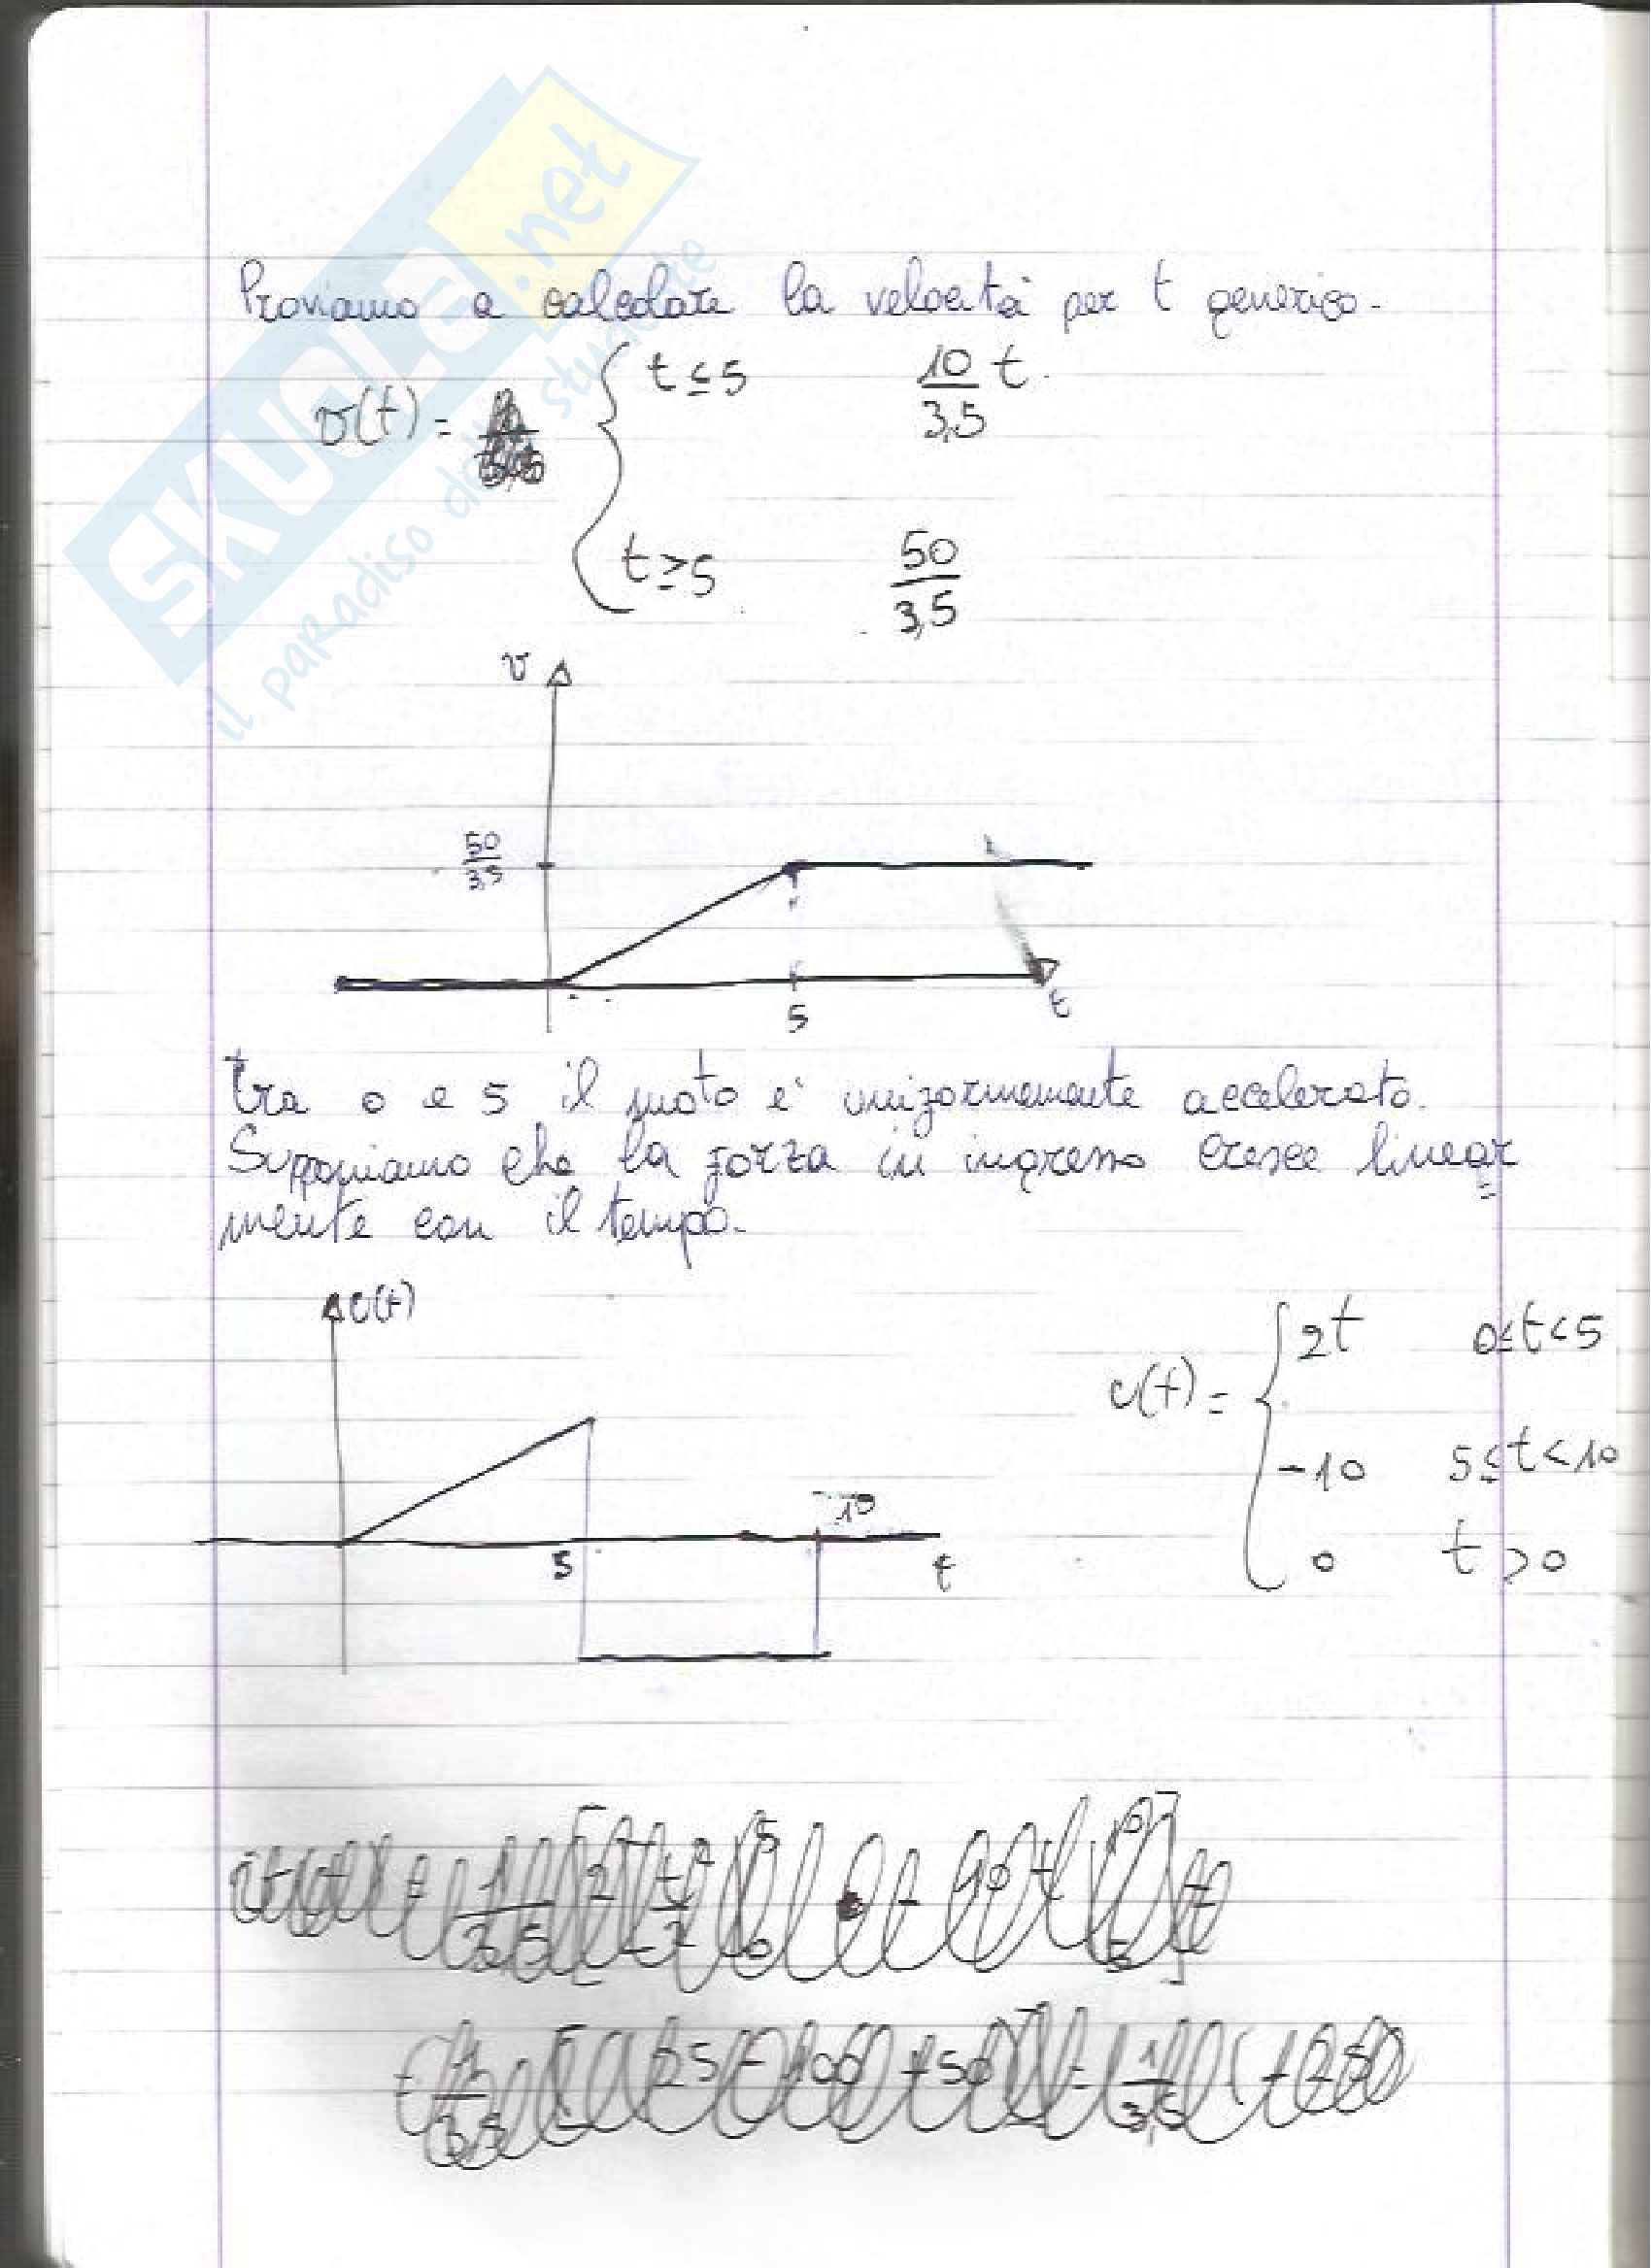 SKUOLA.net
il paradiso dello studente
Proviamo a calcolare la velocità per t generico.
v(t) = { t ≤ 5 10/3,5 t
t ≥ 5 50/3,5
v
50/3,5
5
t
tra 0 e 5 il moto è uniformemente accelerato.
Supponiamo che la forza in ingresso cresce linear
mente con il tempo.
u(t)
10
5
t
u(t) = { 2t 0≤t<5
-10 5≤t<10
0 t>0